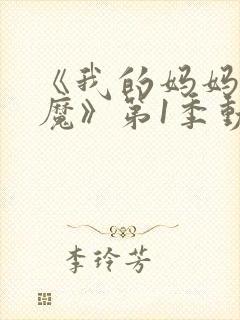 《我的妈妈
魔》第1季動
李玲芳